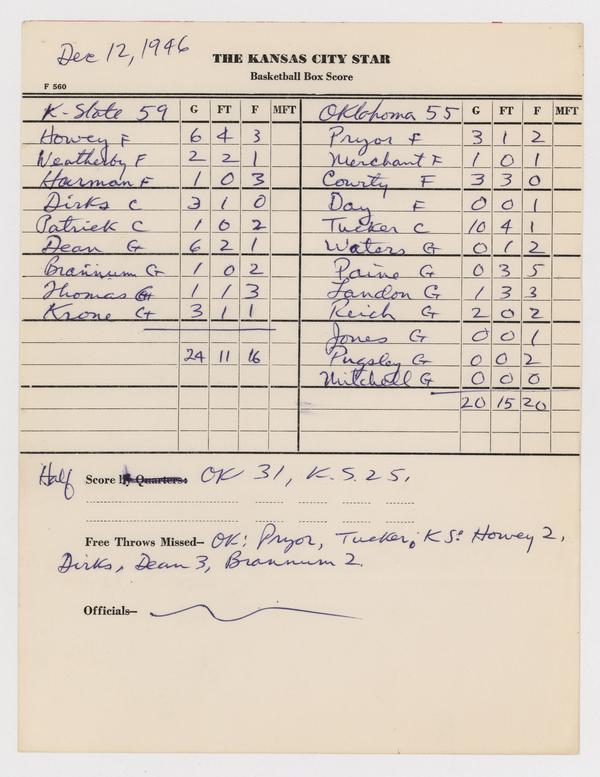 Dec 12, 1946
THE KANSAS CITY STAR
Basketball Box Score
F 560
K-State 59 G FT F MFT Oklahoma 55 G FT F MFT
Howey F 6 4 3 Pryor F 3 1 2
Weatherby F 2 2 1 Merchant F 1 0 1
Harman F 1 0 3 Courty F 3 3 0
Dirks C 3 1 0 Day F 0 0 1
Patrick C 1 0 2 Tucker C 10 4 1
Dean G 6 2 1 Waters G 0 1 2
Brannum G 1 0 2 Paine G 0 3 5
Thomas G 1 1 3 Landon G 1 3 3
Krone G 3 1 1 Reich G 2 0 2
Jones G 0 0 1
24 11 16 Pugsley G 0 0 2
Mitchell G 0 0 0
20 15 20
Half Score by Quarters: OK 31, K.S. 25.
Free Throws Missed— OK: Pryor, Tucker; KS: Howey 2,
Dirks, Dean 3, Brannum 2.
Officials—